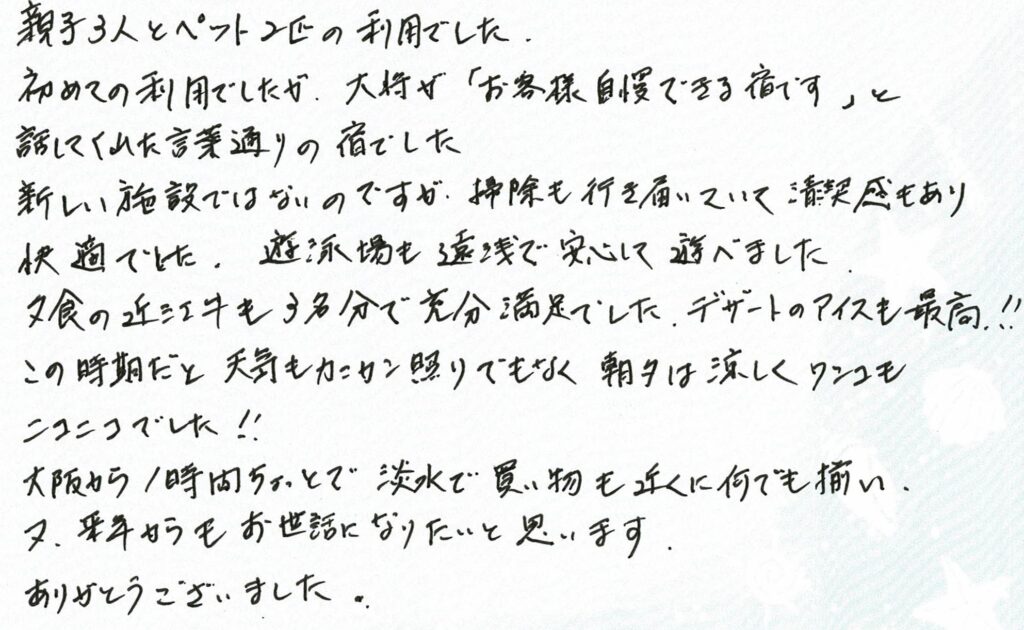 親子3人とペット2匹の利用でした.
初めての利用でしたが、大将が「お客様自慢できる宿です」と
話してくれた言葉通りの宿でした
新しい施設ではないのですが、掃除も行き届いていて清潔感もあり
快適でした. 遊泳場も遠浅で安心して遊べました.
夕食の近江牛も3名分で充分満足でした. デザートのアイスも最高!!
この時期だと天気もカンカン照りでもなく朝夕は涼しくワンコも
ニコニコでした!!
大阪から1時間ちょっとで淡水で買い物も近くに何でも揃い.
又、来年からもお世話になりたいと思います.
ありがとうございました。